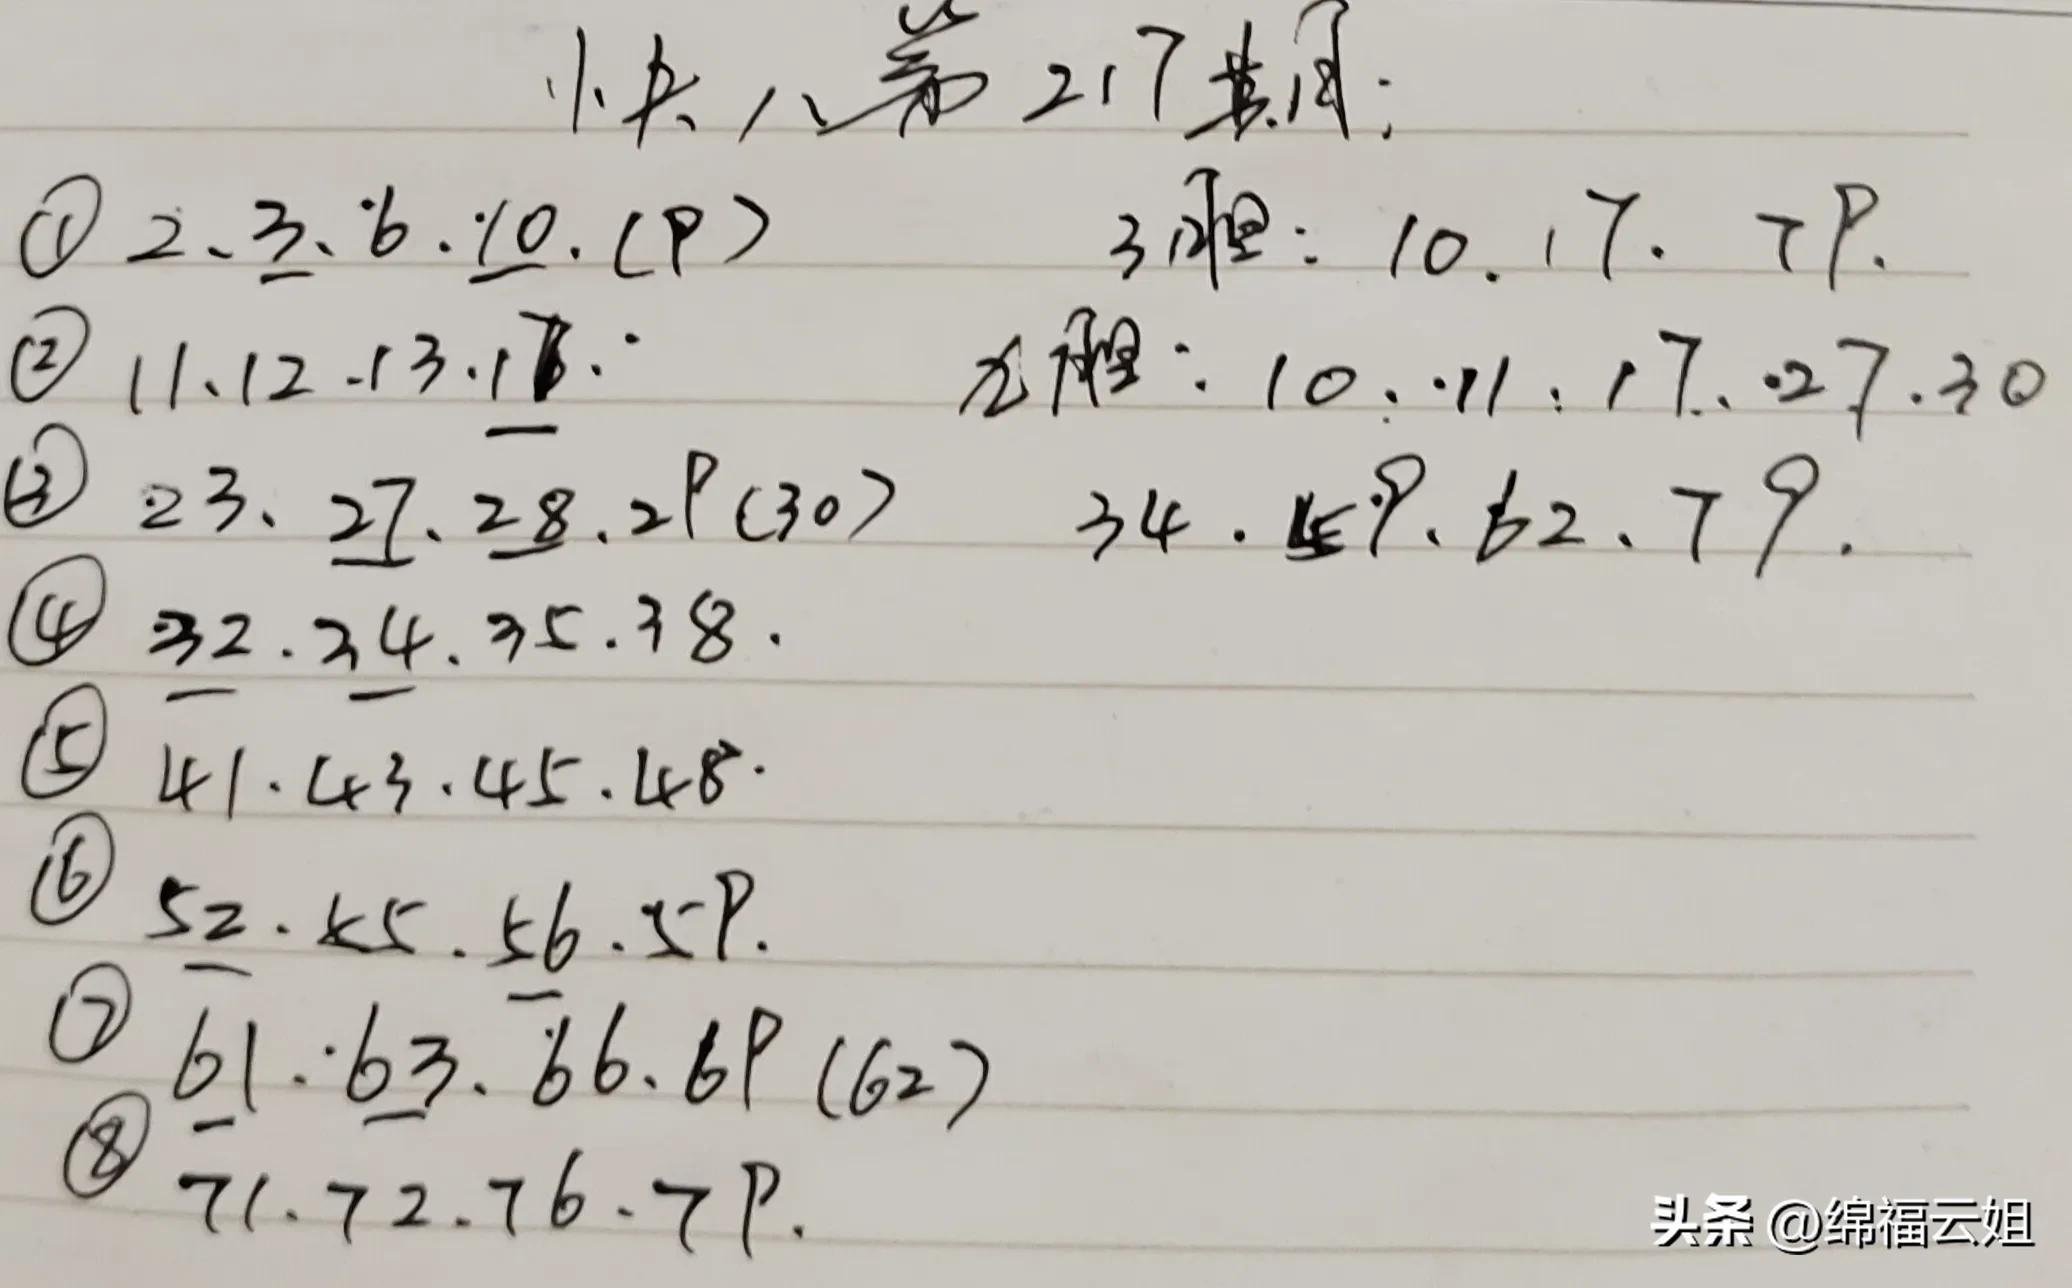 快八第217期:
① 2、3、6.10.(9)
② 11、12.13.17.
③ 23、27、28.29(30)
④ 32.34.35.38.
⑤ 41.43.45.48.
⑥ 52.55.56.59.
⑦ 61.63、66、69(62)
⑧ 71.72.76.79.
3胆:10.17.79.
九胆:10.11.17.27.30
34.59.62.79.
头条 @绵福云姐